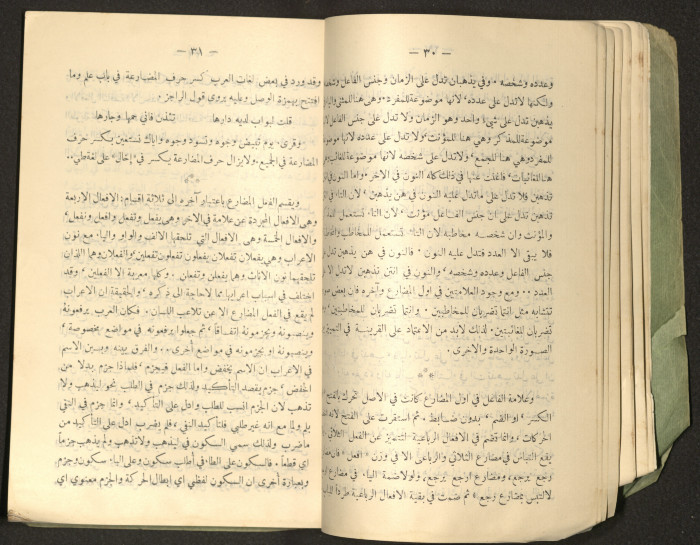 وعدده وشخصه . وفي يذهبان تدل على الزمان وجنس الفاعل وشخصه
ولكنها لا تدل على عدده ، لانها موضوعة للمفرد وهى هنا للمثنى
يذهبن تدل على شيء واحد وهو الزمان ولا تدل على جنس الفاعل
موضوعة للمذكر وهي هنا للمؤنث ، ولا تدل على عدده لانها
للمفرد وهي هنا للجمع ، ولا تدل على شخصه لانها موضوعة
هنا للغائبات ، فاغلت عنها في ذلك كله النون في الآخر ، واما التاء في
تذهبن فلا تدل على ما تدل عليه النون في هن يذهبن ، لان التاء في
تذهبن تدل على ان جنس الفاعل مؤنث ، لان التاء تستعمل للمذكر
والمؤنث وان شخصه مخاطبة لان التاء تستعمل للمخاطب
فلا يبقى الا العدد فتدل عليه النون . فالنون في هن يذهبن تدل
جنس الفاعل وعدده وشخصه ، والنون في انتن تذهبن لا تدل الا
العدد .. ومع وجود العلامتين في اول المضارع وآخره فان بعض
تتشابه مثل انتما تضربان للمخاطبين . وانتما تضربان للمخاطبتين
تضربان للغائبتين . لذلك لابد من الاعتماد على القرينة في التمييز
الصورة الواحدة والاخرى .
وعلامة الفاعل في اول المضارع كانت في الاصل تحرك بالفتح
الكسر او الضم ، بدون ضابط . ثم استقرت على الفتح لانه
الحركات . وانما تضم في الافعال الرباعية لتتميز عن الفعل الثلاثي
يقع التباس في مضارع الثلاثي والرباعى الا في وزن « افعل »
رجع يرجع ، ومضارع ارجع يرجع ، ولولا ضمة الياء في مضارع
لالتبس بمضارع رجع » ثم ضمت في بقية الافعال الرباعية طرداً
— ٣٨ —
وقد ورد في بعض لغات العرب كسر حرف المضارعة في باب علم وما
افتتح بهمزة الوصل وعليه يروى قول الراجز :
قلت لبواب لديه دارها تئذن فاني حمها وجارها
وقرئ . يوم تبيض وجوه وتسود وجوه واياك نستعين بكسر حرف
المضارعة في الجميع . ولا يزال حرف المضارعة يكسر في « إخال » على لغة طي ..
ويقسم الفعل المضارع باعتبار آخره الى ثلاثة اقسام : الافعال الاربعة
وهى الافعال المجردة عن علامة في الاخر وهى يفعل وتفعل وافعل ونفعل ،
والافعال الخمسة وهى الافعال التي تلحقها الالف والواو والياء مع نون
الاعراب وهي يفعلان تفعلان يفعلون تفعلون تفعلين ، والفعلان وهما اللذان
تلحقهما نون الاناث وها يفعلن وتفعلن . وكلها معربة الا الفعلين ، وقد
اختلف في اسباب اعرابها مما لا حاجة الى ذكره ، والحقيقة ان الاعراب
لم يقع في الفعل المضارع الا عن تلاعب اللسان . فكان العرب يرفعونه
وينصبونه ويجزمونه اتفاقاً ، ثم جعلوا يرفعونه في مواضع مخصوصة ،
وينصبونه او يجزمونه في مواضع أخرى .. والفرق بينه وبين الاسم
في الاعراب ان الاسم يخفض واما الفعل فيجزم ، فلماذا جزم بدلا من
الخفض ، جزم بقصد التأكيد ولذلك جزم في الطلب نحو ليذهب ولا
تذهب لان الجزم انسب للطلب وادل على التأكيد ، وانما جزم في النفي
بلم ولما مع انه غير طلبي فلتأكيد النفي ، فلم يضرب ادل على التأكيد من
ما ضرب ولذلك سمي السكون في ليذهب ولا تذهب ولم يذهب جزماً ،
اي قطعاً . فالسكون على الطاء في أطلب سكون وعلى الباء سكون وجزم
وبعبارة أخرى ان السكون لفظي اي ابطال الحركة والجزم معنوي اي